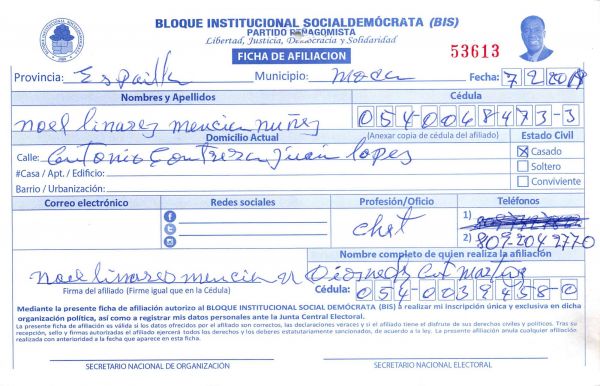 BLOQUE INSTITUCIONAL SOCIALDEMÓCRATA (BIS)
PARTIDO PEÑAGOMISTA
Libertad, Justicia, Democracia y Solidaridad
FICHA DE AFILIACION
53613
Provincia: Espaillat Municipio: Moca Fecha: 7 2 2019
Nombres y Apellidos Cédula
noel linares mencia nuñez 054-0048473-3
Domicilio Actual (Anexar copia de cédula del afiliado) Estado Civil
Calle: Antonio Contreras Juan Lopes Casado
#Casa / Apt. / Edificio: Soltero
Barrio / Urbanización: Conviviente
Correo electrónico Redes sociales Profesión/Oficio Teléfonos
chef 1)
2) 809-204 2770
Nombre completo de quien realiza la afiliación
noel linares mencia
Firma del afiliado (Firme igual que en la Cédula) Cédula: 054-0039458-0
Mediante la presente ficha de afiliación autorizo al BLOQUE INSTITUCIONAL SOCIAL DEMÓCRATA (BIS) a realizar mi inscripción única y exclusiva en dicha
organización política, así como a registrar mis datos personales ante la Junta Central Electoral.
La presente ficha de afiliación es válida si los datos ofrecidos por el afiliado son correctos, las declaraciones veraces y si el afiliado tiene el disfrute de sus derechos civiles y políticos. Tras su
recepción, sello y firmas autorizadas el afiliado tendrá todos los derechos y los deberes estatutariamente sancionados, de acuerdo a la ley. La presente afiliación anula cualquier afiliación
realizada con anterioridad a la fecha que aparece en esta ficha.
SECRETARIO NACIONAL DE ORGANIZACIÓN SECRETARIO NACIONAL ELECTORAL